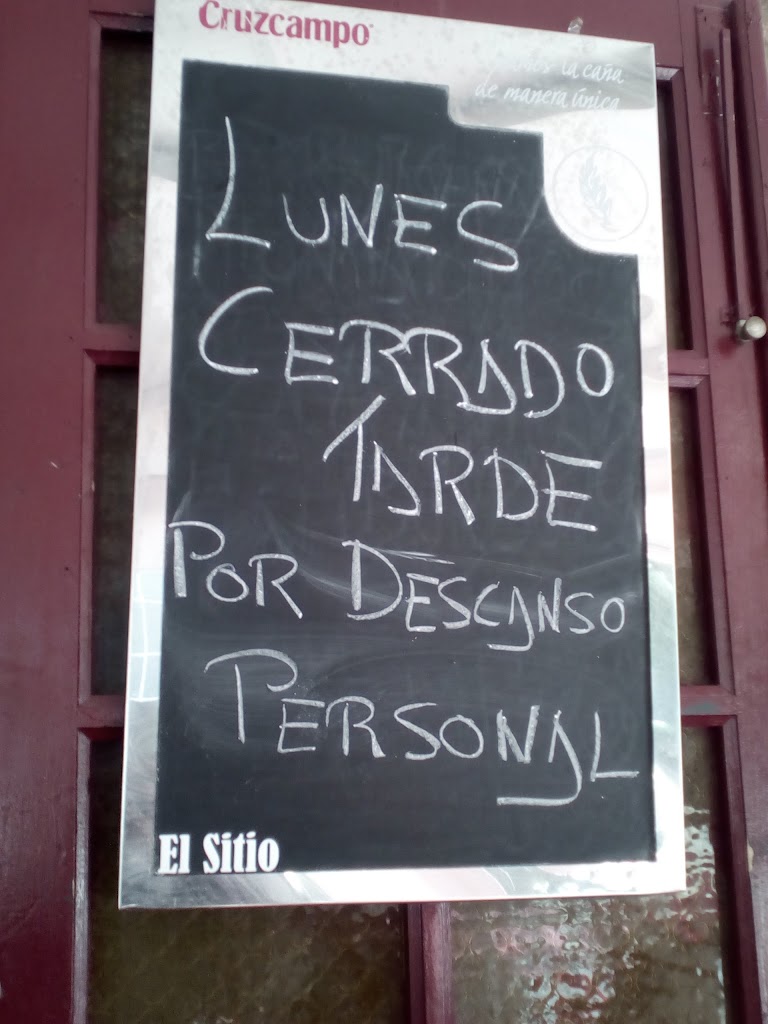 Cruzcampo
la caña
de manera única
LUNES
CERRADO
TARDE
POR DESCANSO
PERSONAL
El Sitio